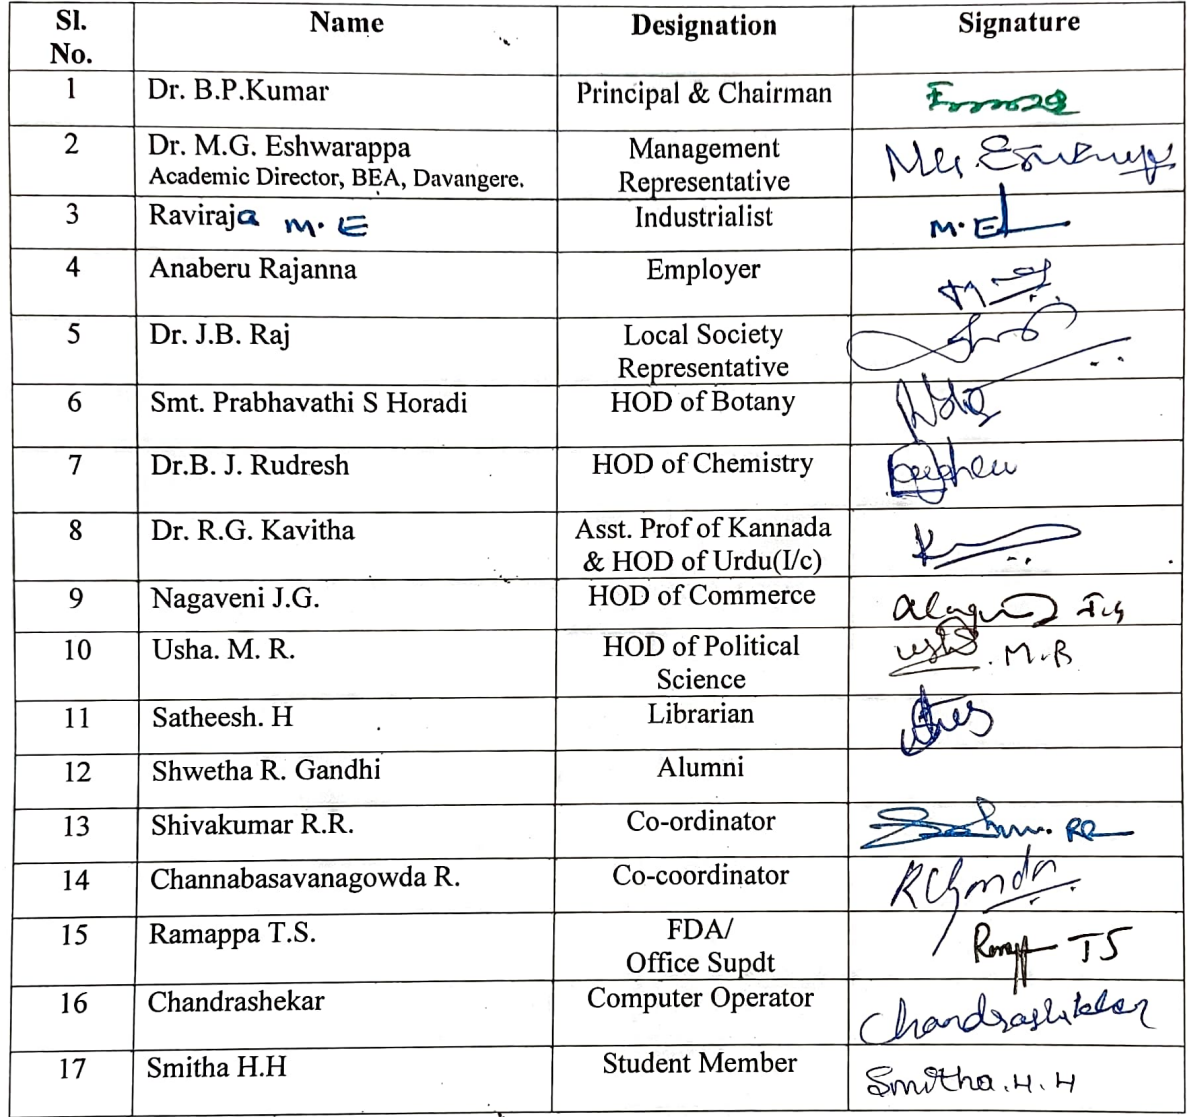 Sl. No. Name Designation Signature
1 Dr. B.P.Kumar Principal & Chairman
2 Dr. M.G. Eshwarappa Management
Academic Director, BEA, Davangere. Representative
3 Raviraja M.E Industrialist M.E
4 Anaberu Rajanna Employer
5 Dr. J.B. Raj Local Society
Representative
6 Smt. Prabhavathi S Horadi HOD of Botany
7 Dr.B. J. Rudresh HOD of Chemistry
8 Dr. R.G. Kavitha Asst. Prof of Kannada
& HOD of Urdu(I/c)
9 Nagaveni J.G. HOD of Commerce
10 Usha. M. R. HOD of Political M.R
Science
11 Satheesh. H Librarian
12 Shwetha R. Gandhi Alumni
13 Shivakumar R.R. Co-ordinator RR
14 Channabasavanagowda R. Co-coordinator
15 Ramappa T.S. FDA/ TS
Office Supdt
16 Chandrashekar Computer Operator Chandrashekar
17 Smitha H.H Student Member Smitha.H.H